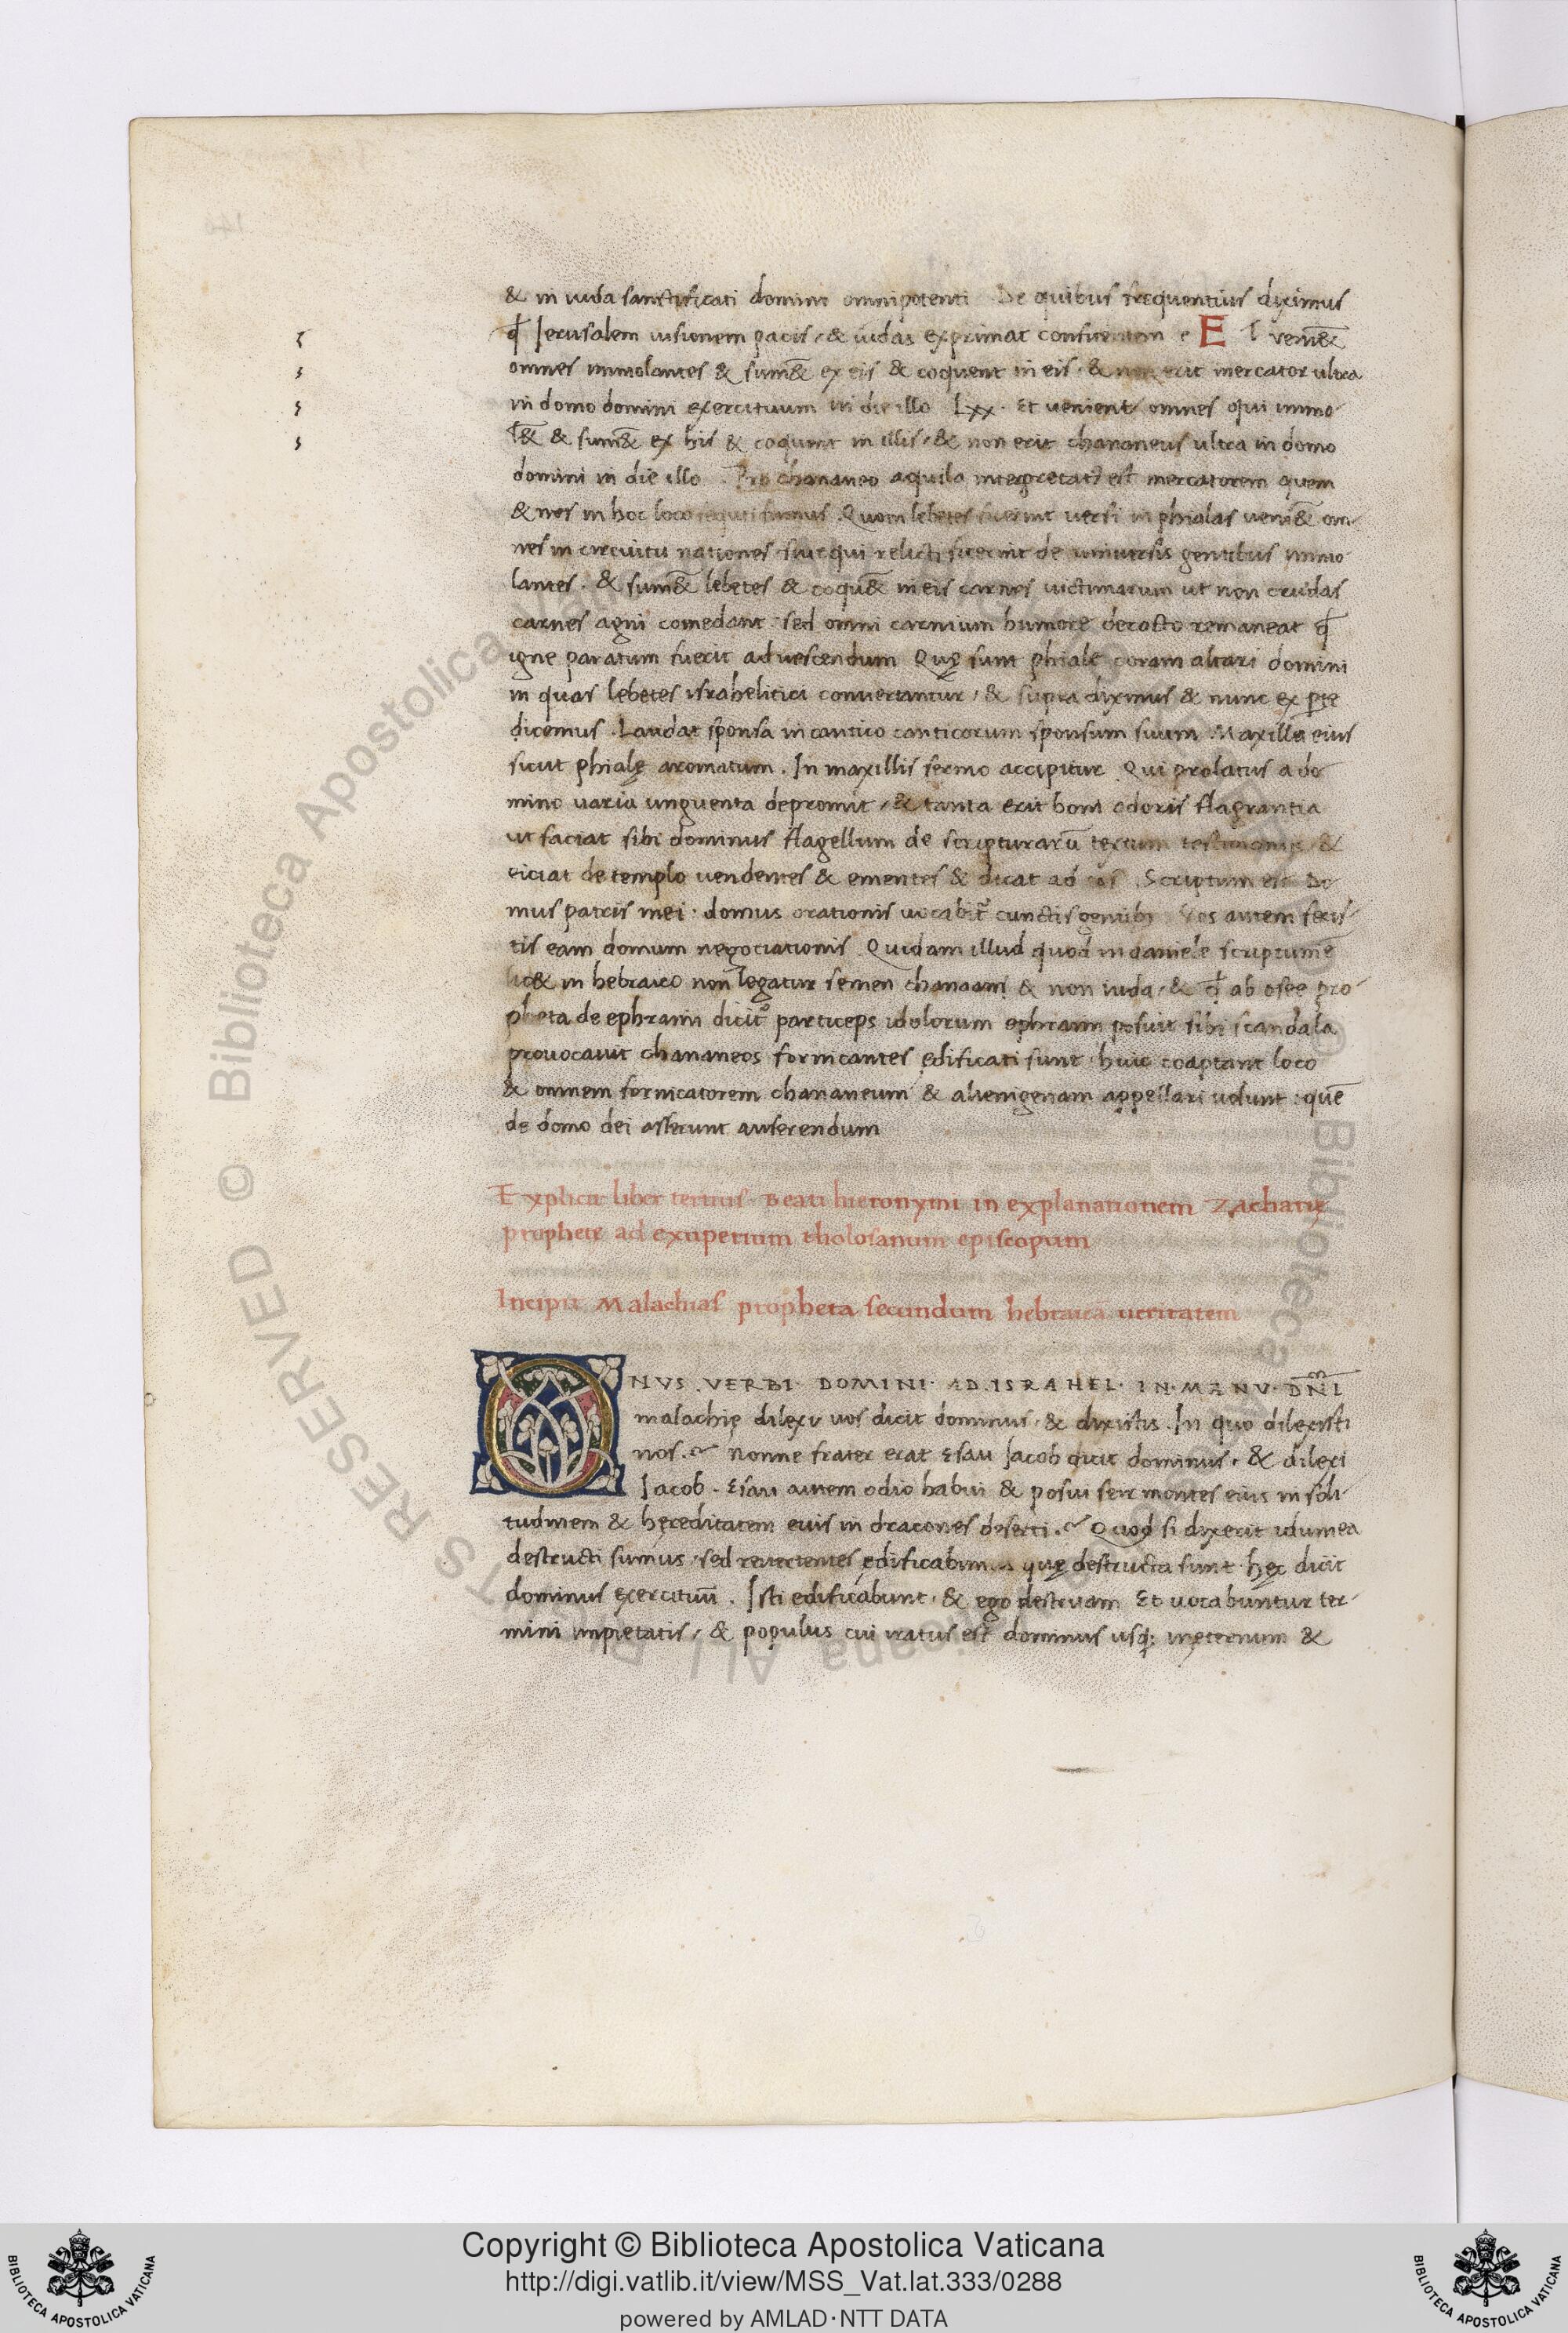 & in iuda sanctificati domini omnipotenti De quibus frequentius diximus
ꝙ Jerusalem uisionem pacis, & iudas exprimat confitentem E T venie&
omnes immolantes & sume& ex eis & coquent in eis. & non erit mercator ultra
in domo domini exercituum in die illo Lxx. Et venient omnes qui immo
l& & sume& ex his & coquent in illis, & non erit chananeus ultra in domo
domini in die illo. Pro chananeo aquila interpretatꝰ est mercatorem quem
& nos in hoc loco sequti sumus. Quom lebetes fuerint uersi in phialas venie& om
nes in circuitu nationes siue qui relicti fuerint de universis gentibus immo
lantes. & sume& lebetes & coque& in eis carnes uictimarum ut non crudas
carnes agni comedant. sed omni carnium humore decocto remaneat ꝙ
igne paratum fuerit ad uescendum Quę sunt phialę coram altari domini
in quas lebetes israhelitici convertantur, & supra diximus & nunc ex ꝑte
dicemus. Laudat sponsa in cantico canticorum sponsum suum. Maxillę eius
sicut phialę aromatum. In maxillis sermo accipitur Qui prolatus a do
mino uaria unguenta depromit, & tanta erit boni odoris flagrantia
ut faciat sibi dominus flagellum de scripturarū textum testimoniis &
eiciat de templo vendentes & ementes & dicat ad eos. Scriptum est Do
mus patris mei: domus orationis vocabit᷑ cunctis gentibꝫ Vos autem fecis
tis eam domum negociationis Quidam illud quod in daniele scriptum ē
lic& in hebraico non legatur semen chanaam & non iuda, & ꝙ ab osee pro
pheta de ephraim dicit᷑ particeps idolorum ephraim posuit sibi scandala
provocavit chananeos fornicantes ędificati sunt. huic coaptant loco
& omnem fornicatorem chananeum & alienigenam appellari volunt: quē
de domo dei asserunt auferendum
Explicit liber tertius Beati hieronymi in explanationem Zacharię
prophetę ad exuperium tholosanum episcopum
Incipit Malachias propheta secundum hebraicā ueritatem
ONVS. VERBI. DOMINI. AD. ISRAHEL. IN. MANV. DN̄I
malachię dilexi vos dicit dominus, & dixistis. In quo dilexisti
nos. Nonne frater erat Esau Jacob dicit dominus. & dilexi
Jacob. Esau autem odio habui & posui seir montes eius in soli
tudinem & hęreditatem euis in dracones deserti. Quod si dixerit idumea
destructi sumus, sed revertentes ędificabimus quę destructa sunt hęc dicit
dominus exercituū. Isti edificabunt. & ego destruam Et vocabuntur ter
mini impietatis, & populus cui iratus est dominus usqꝫ inęternum &
Copyright © Biblioteca Apostolica Vaticana
http://digi.vatlib.it/view/MSS_Vat.lat.333/0288
powered by AMLAD·NTT DATA